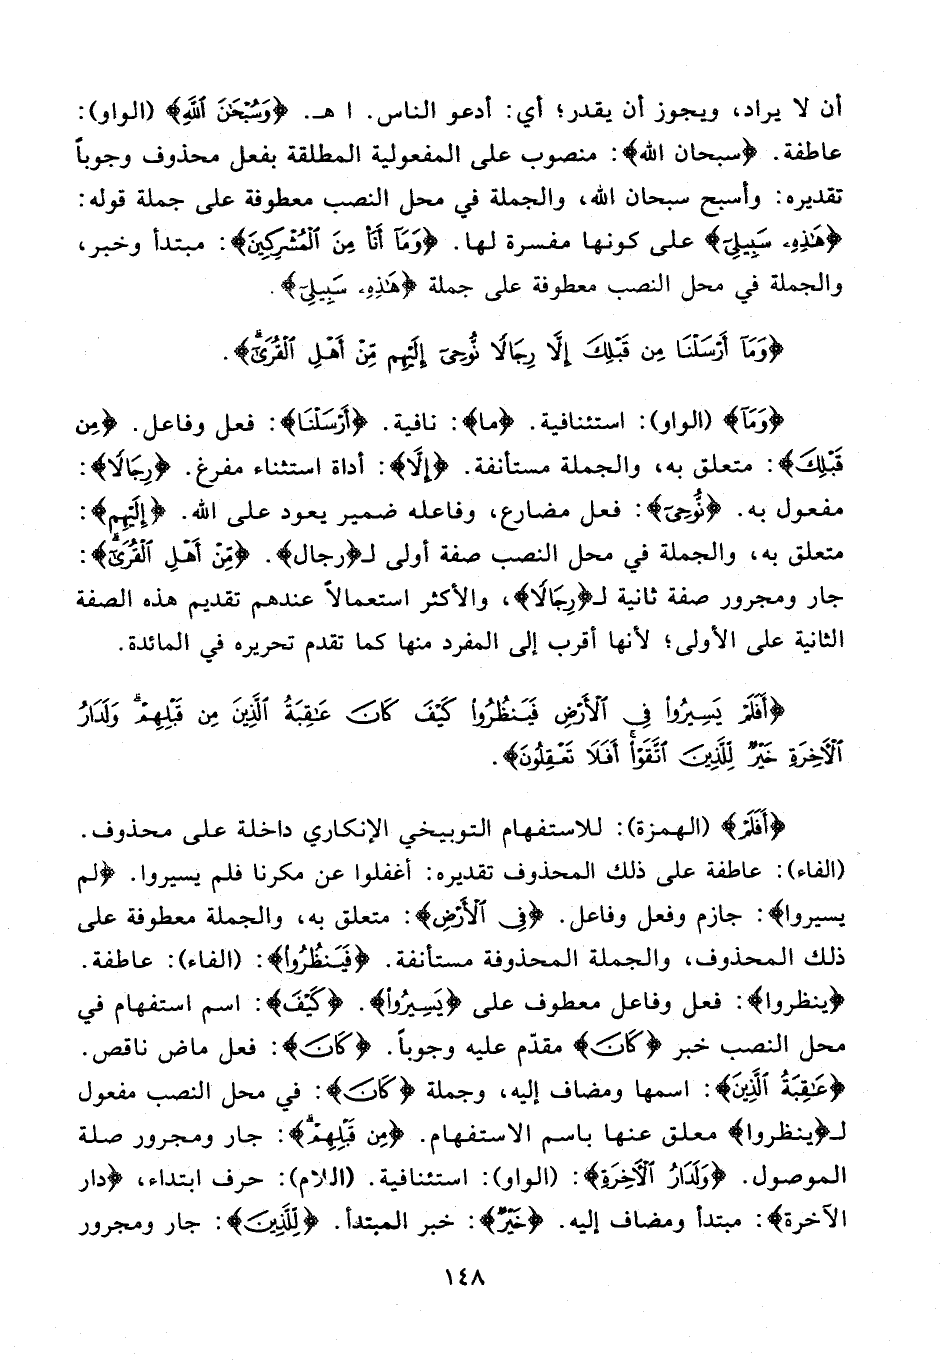 أن لا يراد، ويجوز أن يقدر؛ أي: أدعو الناس. ا هـ. ﴿وَسُبْحَٰنَ ٱللَّهِ﴾ (الواو):
عاطفة. ﴿سبحان الله﴾: منصوب على المفعولية المطلقة بفعل محذوف وجوباً
تقديره: وأسبح سبحان الله، والجملة في محل النصب معطوفة على جملة قوله:
﴿هَٰذِهِۦ سَبِيلِىٓ﴾ على كونها مفسرة لها. ﴿وَمَآ أَنَا۠ مِنَ ٱلْمُشْرِكِينَ﴾: مبتدأ وخبر،
والجملة في محل النصب معطوفة على جملة ﴿هَٰذِهِۦ سَبِيلِىٓ﴾.
﴿وَمَآ أَرْسَلْنَا مِن قَبْلِكَ إِلَّا رِجَالًا نُّوحِىٓ إِلَيْهِم مِّنْ أَهْلِ ٱلْقُرَىٰٓ ۗ﴾.
﴿وَمَآ﴾ (الواو): استئنافية. ﴿ما﴾: نافية. ﴿أَرْسَلْنَا﴾: فعل وفاعل. ﴿مِن
قَبْلِكَ﴾: متعلق به، والجملة مستأنفة. ﴿إِلَّا﴾: أداة استثناء مفرغ. ﴿رِجَالًا﴾:
مفعول به. ﴿نُّوحِىٓ﴾: فعل مضارع، وفاعله ضمير يعود على الله. ﴿إِلَيْهِم﴾:
متعلق به، والجملة في محل النصب صفة أولى لـ﴿رجال﴾. ﴿مِّنْ أَهْلِ ٱلْقُرَىٰٓ ۗ﴾:
جار ومجرور صفة ثانية لـ﴿رِجَالًا﴾، والأكثر استعمالاً عندهم تقديم هذه الصفة
الثانية على الأولى؛ لأنها أقرب إلى المفرد منها كما تقدم تحريره في المائدة.
﴿أَفَلَمْ يَسِيرُوا۟ فِى ٱلْأَرْضِ فَيَنظُرُوا۟ كَيْفَ كَانَ عَٰقِبَةُ ٱلَّذِينَ مِن قَبْلِهِمْ ۗ وَلَدَارُ
ٱلْـَٔاخِرَةِ خَيْرٌ لِّلَّذِينَ ٱتَّقَوْا۟ ۗ أَفَلَا تَعْقِلُونَ﴾.
﴿أَفَلَمْ﴾ (الهمزة): للاستفهام التوبيخي الإنكاري داخلة على محذوف.
(الفاء): عاطفة على ذلك المحذوف تقديره: أغفلوا عن مكرنا فلم يسيروا. ﴿لم
يسيروا﴾: جازم وفعل وفاعل. ﴿فِى ٱلْأَرْضِ﴾: متعلق به، والجملة معطوفة على
ذلك المحذوف، والجملة المحذوفة مستأنفة. ﴿فَيَنظُرُوا۟﴾: (الفاء): عاطفة.
﴿ينظروا﴾: فعل وفاعل معطوف على ﴿يَسِيرُوا۟﴾. ﴿كَيْفَ﴾: اسم استفهام في
محل النصب خبر ﴿كَانَ﴾ مقدّم عليه وجوباً. ﴿كَانَ﴾: فعل ماض ناقص.
﴿عَٰقِبَةُ ٱلَّذِينَ﴾: اسمها ومضاف إليه، وجملة ﴿كَانَ﴾: في محل النصب مفعول
لـ﴿ينظروا﴾ معلق عنها باسم الاستفهام. ﴿مِن قَبْلِهِمْ ۗ﴾: جار ومجرور صلة
الموصول. ﴿وَلَدَارُ ٱلْـَٔاخِرَةِ﴾: (الواو): استئنافية. (اللام): حرف ابتداء، ﴿دار
الآخرة﴾: مبتدأ ومضاف إليه. ﴿خَيْرٌ﴾: خبر المبتدأ. ﴿لِّلَّذِينَ﴾: جار ومجرور
١٤٨